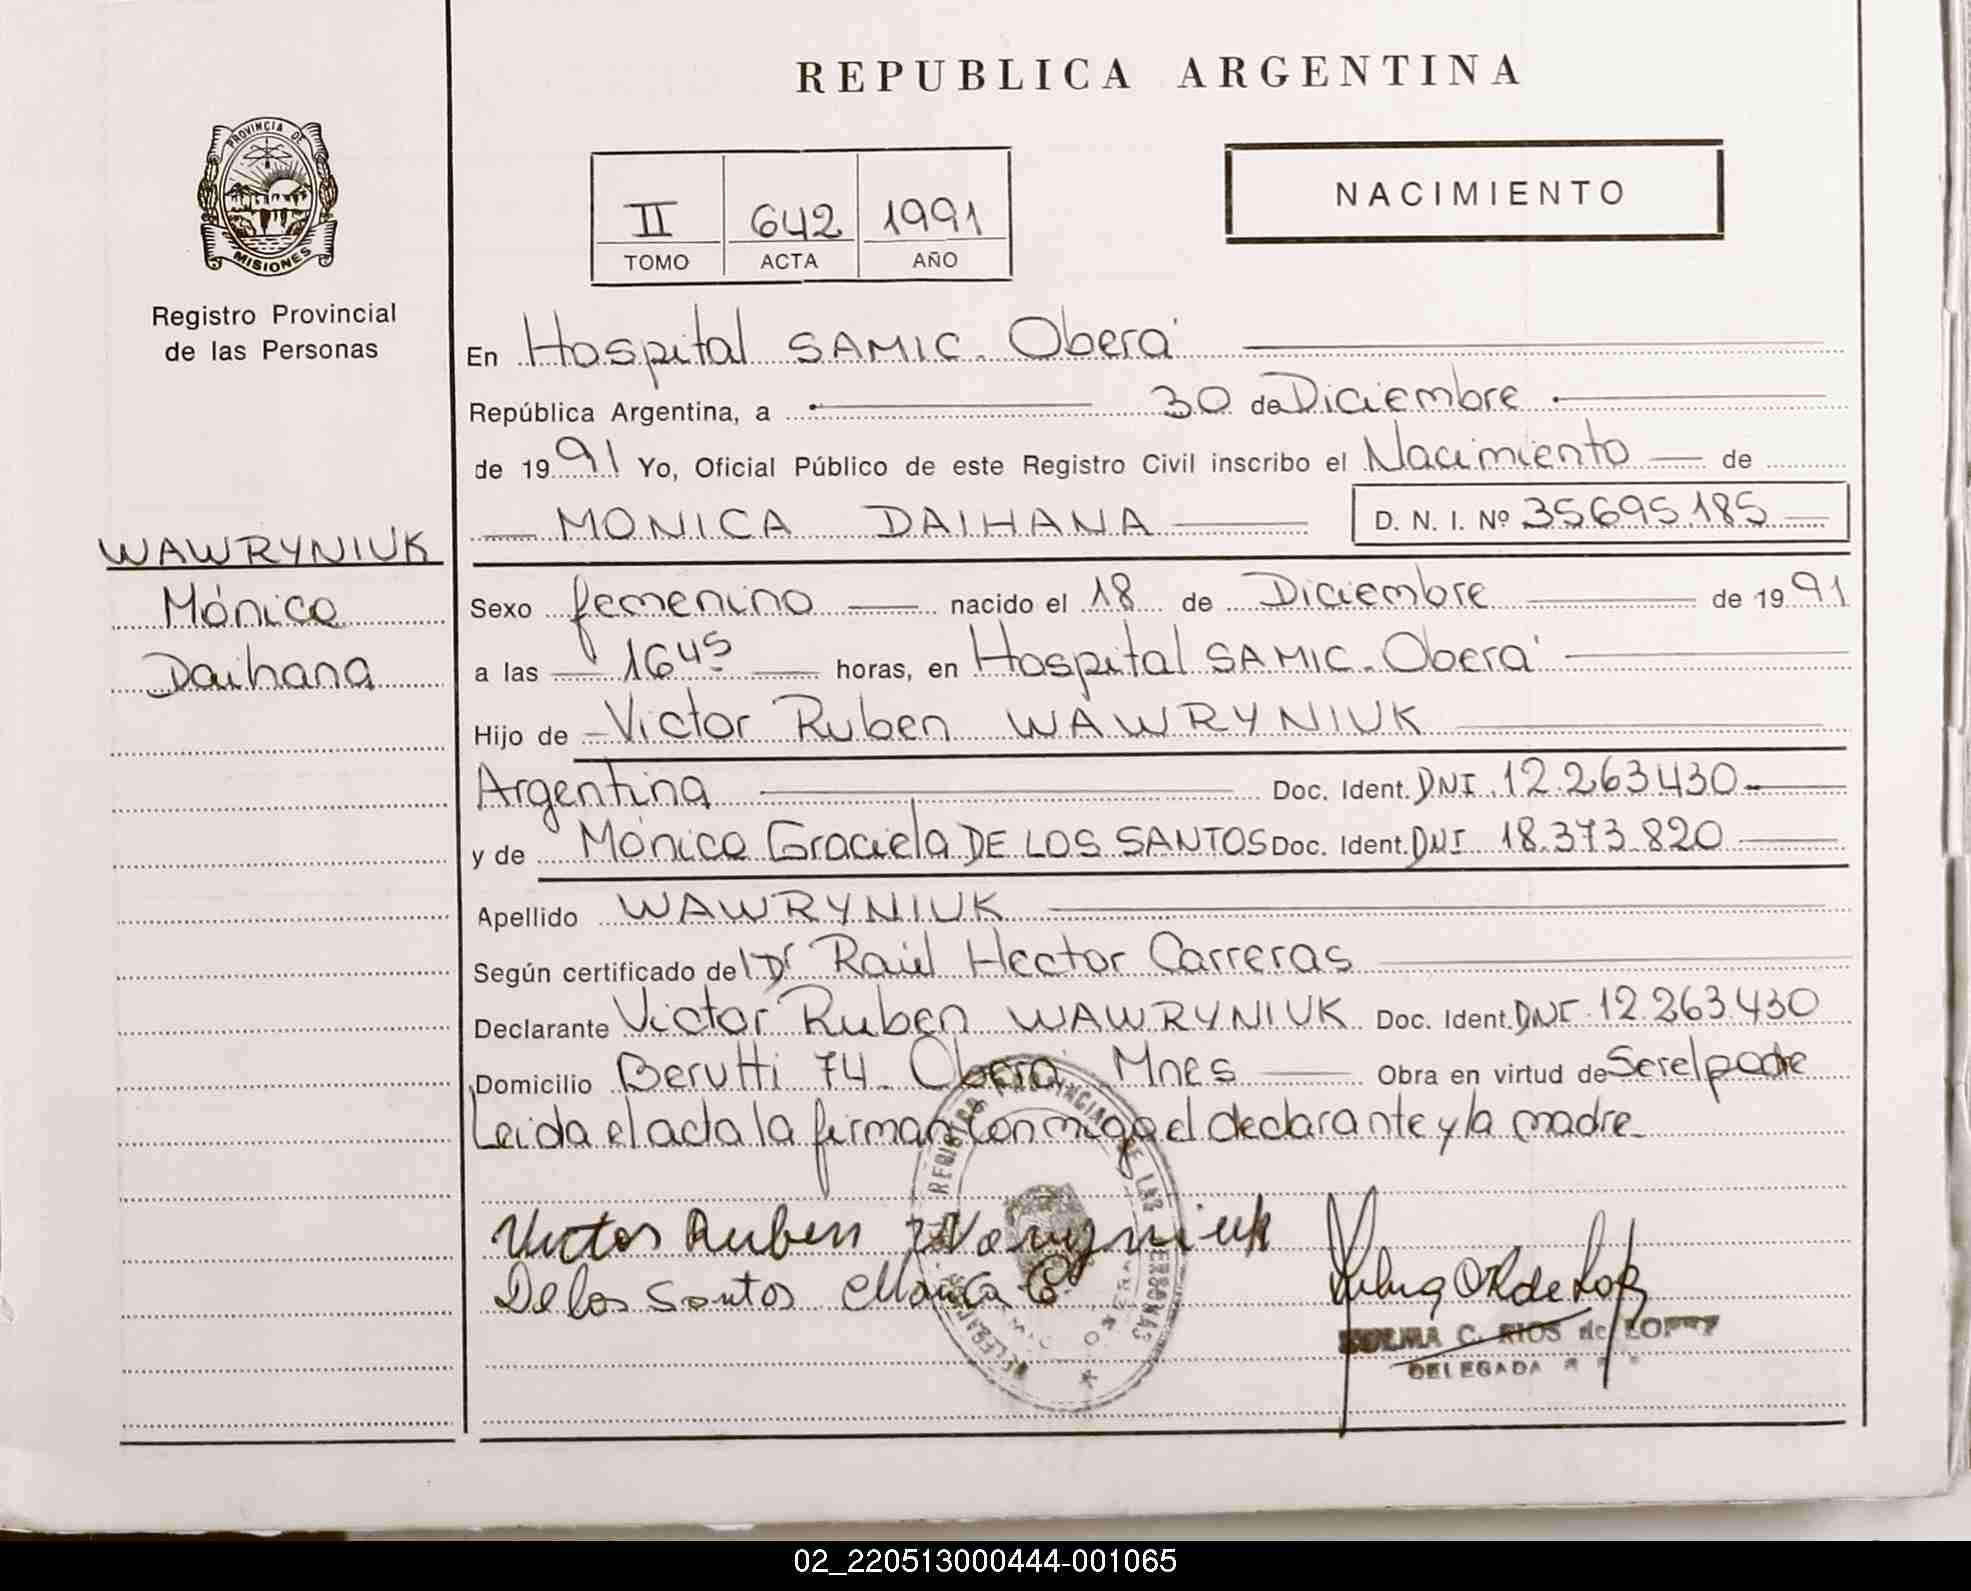 REPUBLICA ARGENTINA
PROVINCIA DE
MISIONES
Registro Provincial
de las Personas
NACIMIENTO
II 642 1991
TOMO ACTA AÑO
En Hospital SAMIC. Oberá
República Argentina, a 30 de Diciembre
de 1991 Yo, Oficial Público de este Registro Civil inscribo el Nacimiento de
MONICA DAIHANA D. N. I. Nº 35695185
WAWRYNIUK
Mónica
Daihana
Sexo femenino nacido el 18 de Diciembre de 1991
a las 16 45 horas, en Hospital SAMIC. Oberá
Hijo de Victor Ruben WAWRYNIUK
Argentina Doc. Ident. DNI 12.263.430
y de Mónica Graciela DE LOS SANTOS Doc. Ident. DNI 18.373.820
Apellido WAWRYNIUK
Según certificado del Dr Raúl Hector Carreras
Declarante Victor Ruben WAWRYNIUK Doc. Ident. DNI. 12.263.430
Domicilio Berutti 74. Oberá Mnes Obra en virtud de Ser el padre
Leida el acta la firman conmigo el declarante y la madre
REGISTRO PROVINCIAL DE LAS PERSONAS
Victor Ruben Wawryniuk
De los Santos Monica G
C. RIOS de LOPEZ
DELEGADA
02_220513000444-001065